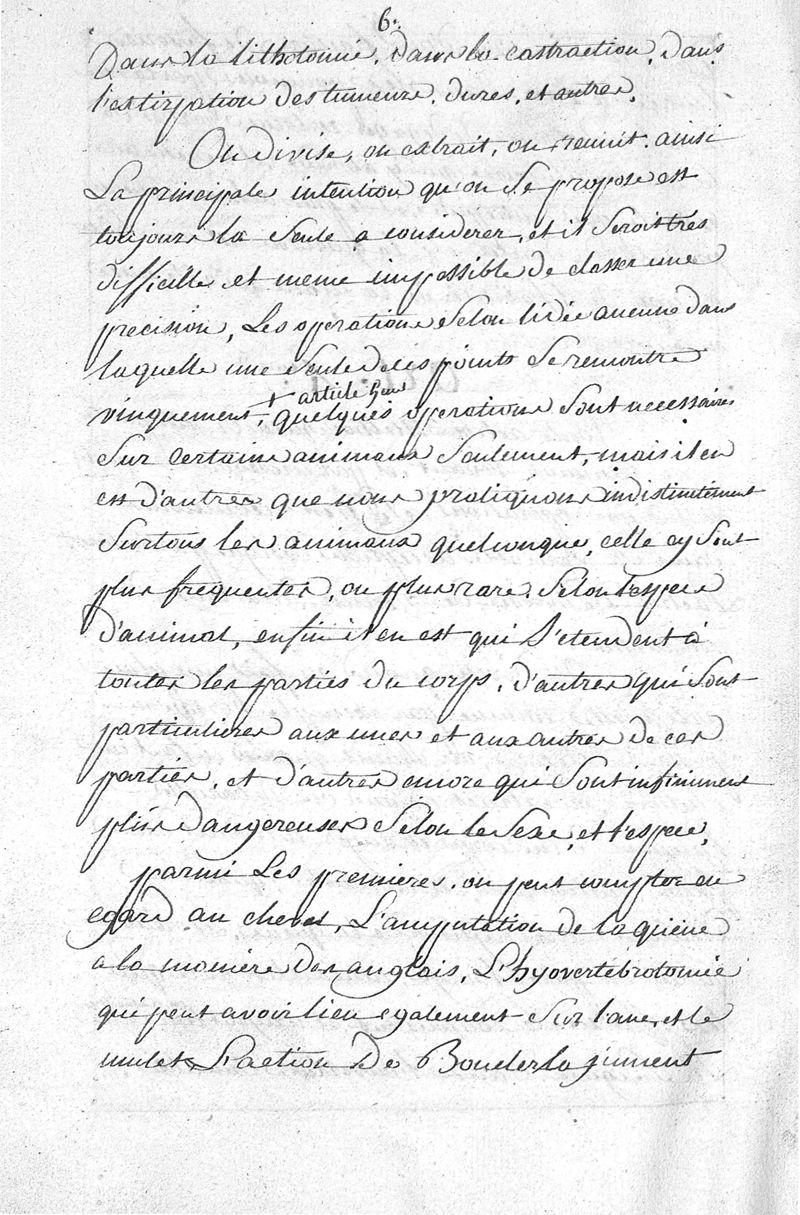 6.
Dans la lithotomie, dans la castraction, dans
l'extirpation des tumeurs, dures, et autres,
On divise, on extrait, on reunit. ainsi
La principale intention qu'on se propose est
toujours la seule a considerer, et il seroit tres
difficille et meme impossible de classer une
precision, Les operations selon lidée aucune dans
laquelle une seule de ces points se remontre
+ article 5eme
vinquement, quelques operations sont necessaires
sur certains animaux seulement, mais il en
est d'autres que nous pratiquons indistinctement
sur tous les animaux quelconque, celle cy sont
plus frequentes, ou plus rare, selon l'espece
d'animal, enfin il en est qui s'etendent à
toutes les parties du corps, d'autres qui sont
particulieres aux unes et aux autres de ces
parties, et d'autres encore qui sont infiniment
plus dangereuses selon le sexe, et l'espece,
parmi Les premieres, on peut compter eu
egard au cheval, L'amputation de la queue
a la maniere des anglais, L'hyovertebrotomie
qui peut avoir lieu egalement sur l'ane, et le
mulet L'action De Boucler la jument